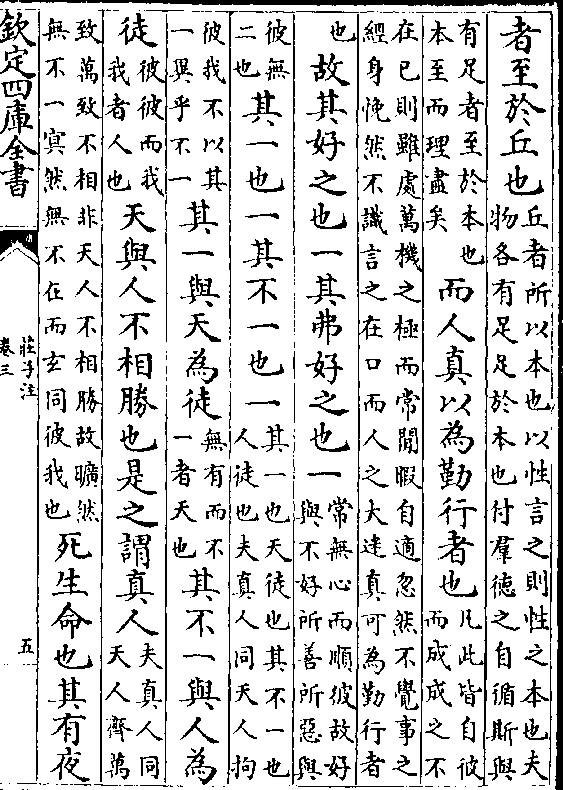 者至於丘也丘者所以本也以性言之則性之本也夫
物各有足足於本也付羣德之自循斯與
有足者至於本也
本至而理盡矣
而人真以為勤行者也凡此皆自彼
而成成之不
在已則雖處萬機之極而常閒暇自適忽然不覺事之
經身悗然不識言之在口而人之大迷真可為勤行者
也
故其好之也一其弗好之也一常無心而順彼故好
與不好所善所惡與
彼無
二也
其一也一其不一也一其一也天徒也其不一也
人徒也夫真人同天人拘
彼我不以其
一異乎不一
其一與天為徒無有而不
一者天也
其不一與人為
徒彼彼而我
我者人也
天與人不相勝也是之謂真人夫真人同
天人齊萬
致萬致不相非天人不相勝故曠然
無不一㝠然無不在而玄同彼我也
死生命也其有夜
欽定四庫全書
莊子注
卷三
五